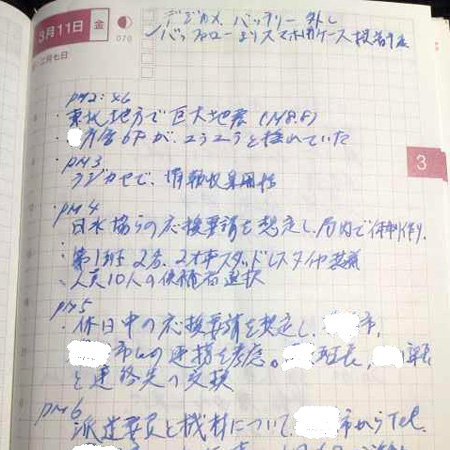 3月11日 金
070
二月七日
デジカメ バッテリー 外し
バッファローよりスマホ用ケース
3
PM2:46
・東北地方で巨大地震(M8.8)
庁舎6Fが、ユラユラと揺れていた
PM3
ラジカセで、情報収集開始
PM4
日水協らの応援要請を想定し、局内で体制作り。
・第1班 2名、2t車スタッドレスタイヤ装着
・人員10人の候補者選択
PM5
・休日中の応援要請を想定し、市、
市との連携を考慮。班長、
と連絡先の交換
PM6
派遣要員と機材について、市からTel.